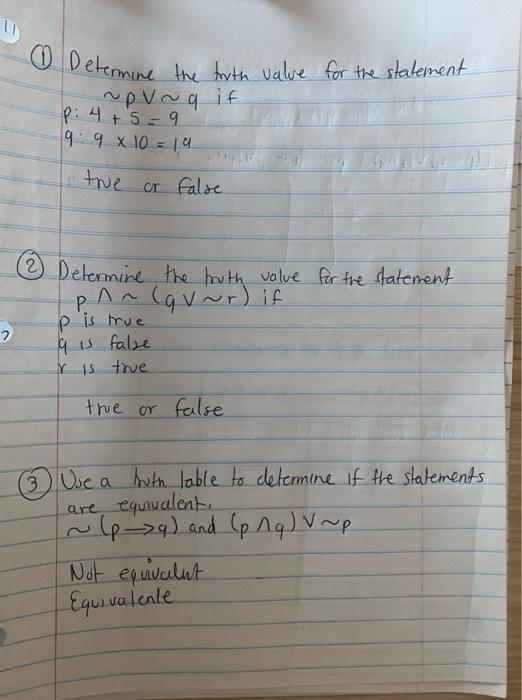 11
① Determine the truth value for the statement
~p V ~q if
p: 4 + 5 = 9
q: 9 x 10 = 19
true or false
② Determine the truth value for the statement
p ∧ ~ (q V ~r) if
p is true
q is false
r is true
true or false
③ Use a truth table to determine if the statements
are equivalent.
~ (p → q) and (p ∧ q) V ~p
Not equivalent
Equivalente